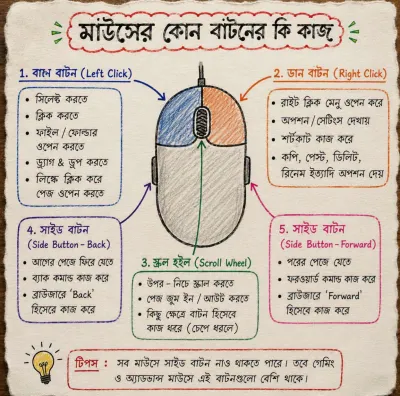 মাউসের কোন বাটনের কি কাজ
1. বামে বাটন (Left Click)
• সিলেক্ট করতে
• ক্লিক করতে
• ফাইল / ফোল্ডার
ওপেন করতে
• ড্র্যাগ & ড্রপ করতে
• লিঙ্কে ক্লিক করে
পেজ ওপেন করতে
2. ডান বাটন (Right Click)
• রাইট ক্লিক মেনু ওপেন করে
• অপশন / সেটিংস দেখায়
• শর্টকাট কাজ করে
• কপি, পেস্ট, ডিলিট,
রিনেম ইত্যাদি অপশন দেয়
4. সাইড বাটন
(Side Button – Back)
• আগের পেজে ফিরে যেতে
• ব্যাক কমান্ড কাজ করে
• ব্রাউজারে 'Back'
হিসেবে কাজ করে
3. স্ক্রল হুইল (Scroll Wheel)
• উপর – নিচে স্ক্রল করতে
• পেজ জুম ইন / আউট করতে
• কিছু ক্ষেত্রে বাটন হিসেবে
কাজ করে (চেপে ধরলে)
5. সাইড বাটন
(Side Button – Forward)
• পরের পেজে যেতে
• ফরওয়ার্ড কমান্ড কাজ করে
• ব্রাউজারে 'Forward'
হিসেবে কাজ করে
টিপস : সব মাউসে সাইড বাটন নাও থাকতে পারে। তবে গেমিং
ও অ্যাডভান্স মাউসে এই বাটনগুলো বেশি থাকে।